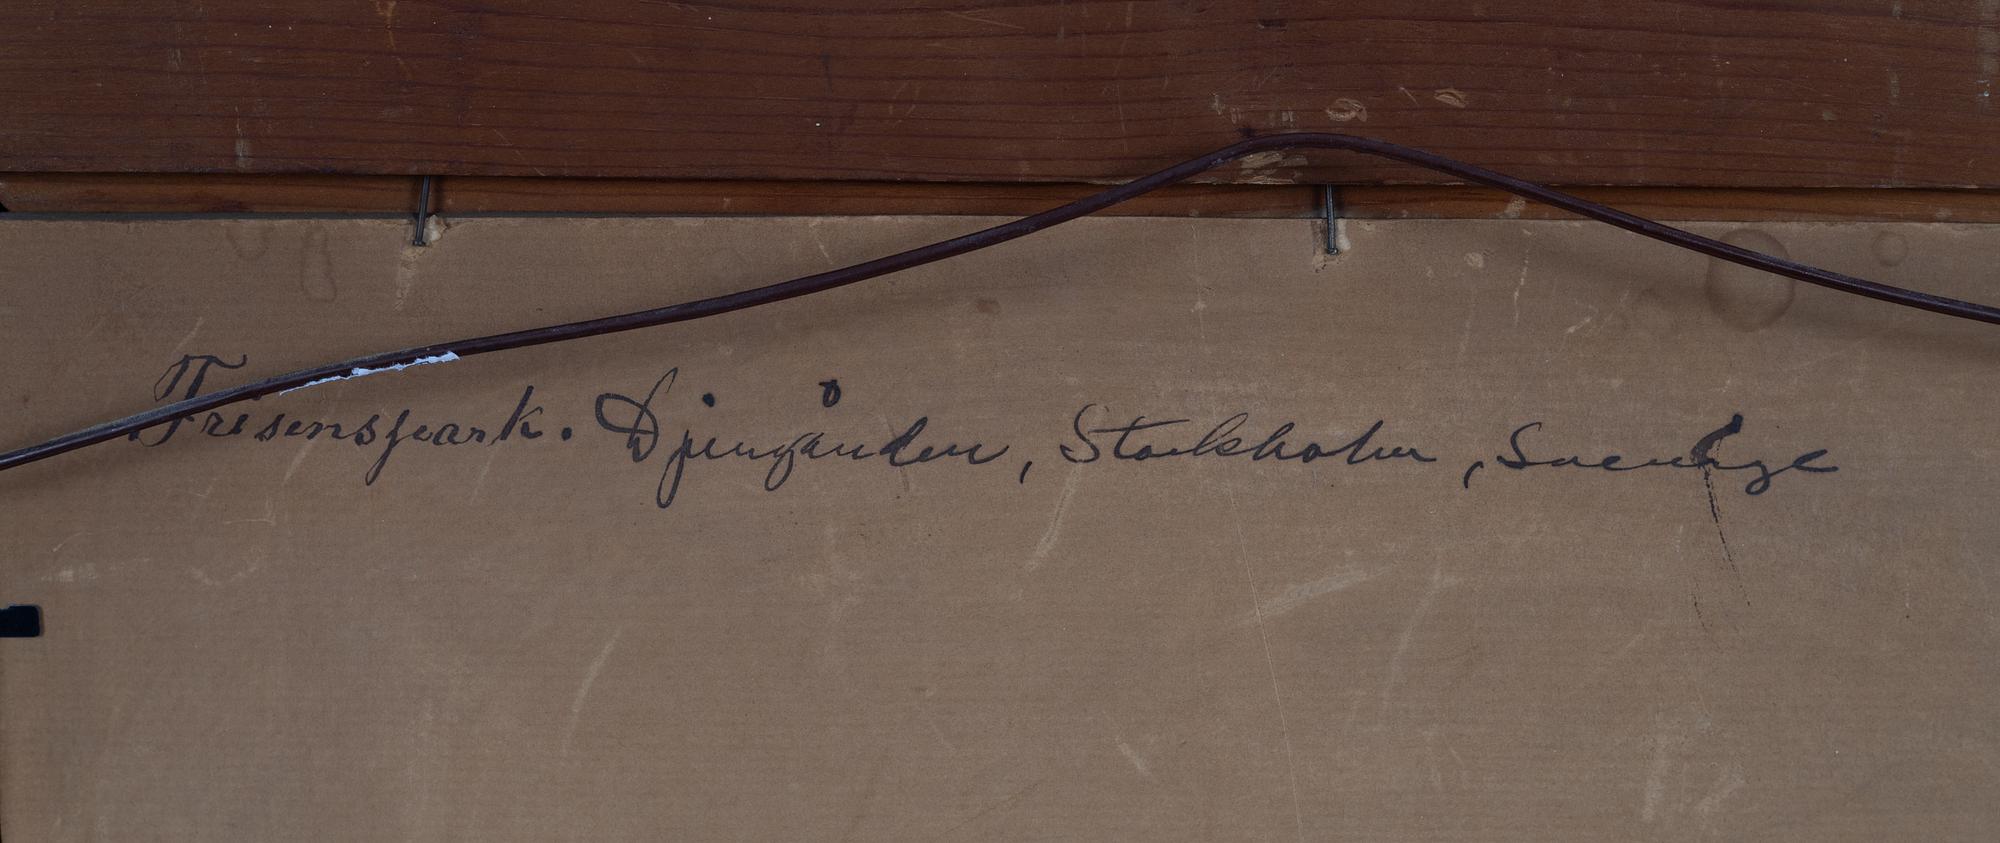 Frisenspark. Djurgården, Stockholm, Sverige